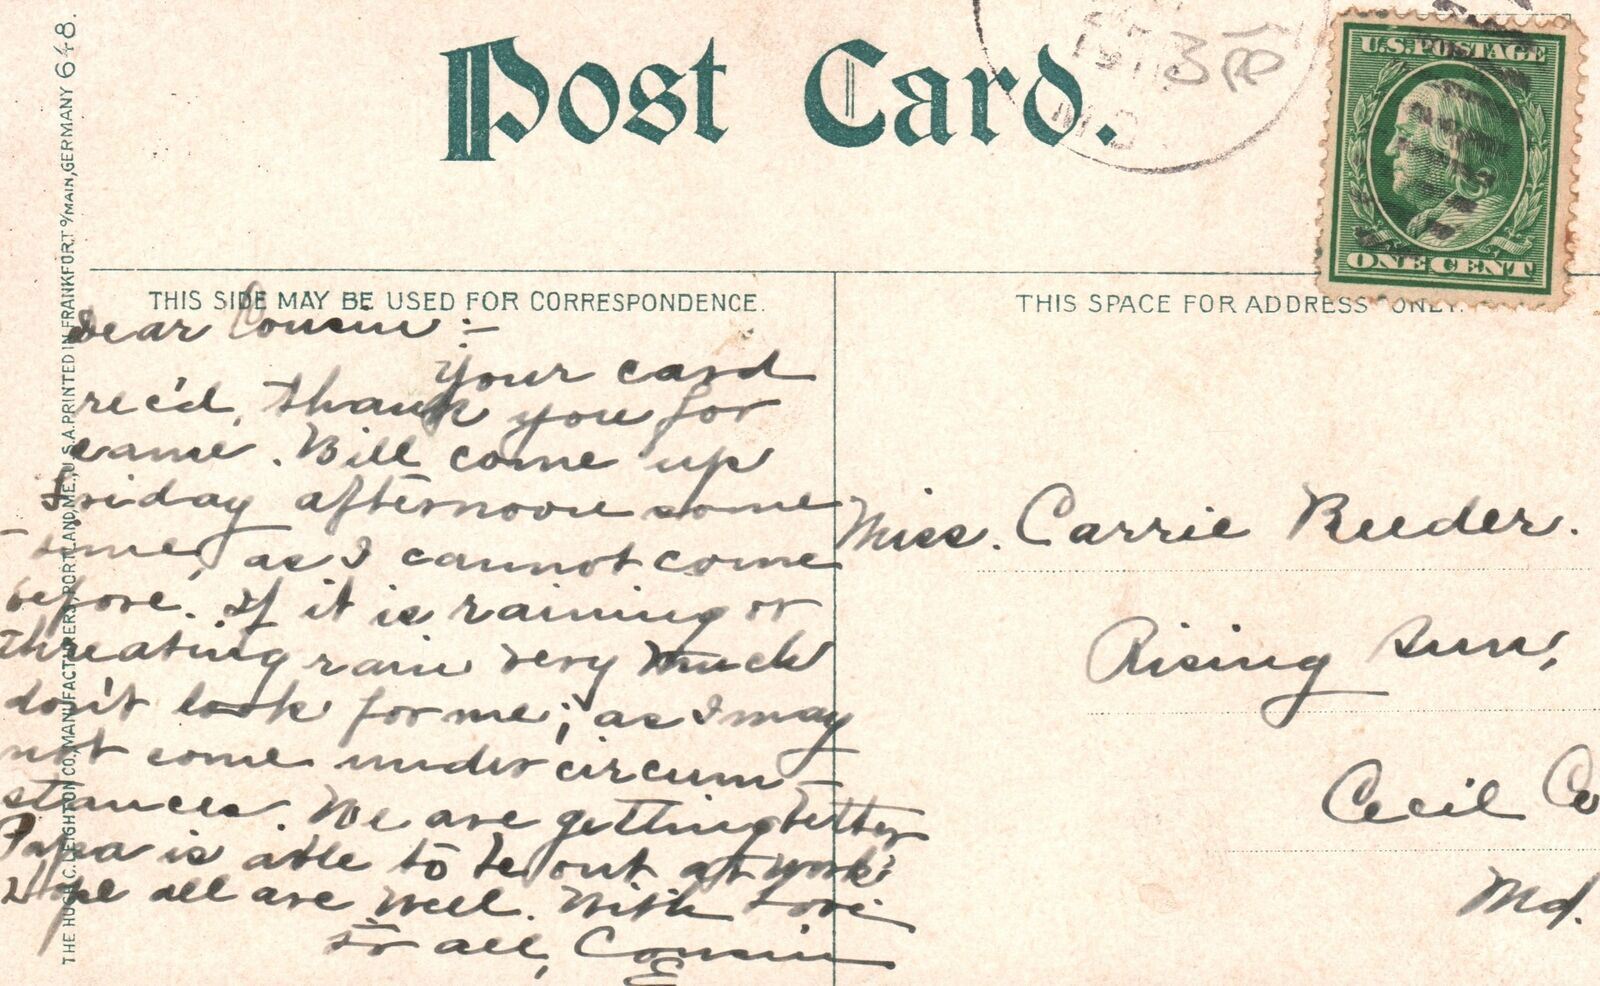 THE HUGH C. LEIGHTON CO., MANUFACTURERS, PORTLAND, ME., U.S.A. PRINTED IN FRANKFORT o/MAIN, GERMANY 648.
Post Card.
1911
MD
U.S. POSTAGE
ONE CENT
THIS SIDE MAY BE USED FOR CORRESPONDENCE.
Dear Cousin:-
Your card
rec'd, thank you for
same. Will come up
Friday afternoon some
-time, as I cannot come
before. If it is raining or
threating rain very much
don't look for me; as I may
not come under circum-
stances. We are getting better
Papa is able to be out at work.
Hope all are well. With Love
to all, Cousin
E
THIS SPACE FOR ADDRESS ONLY.
Miss. Carrie Reeder.
Rising Sun,
Cecil Co
Md.